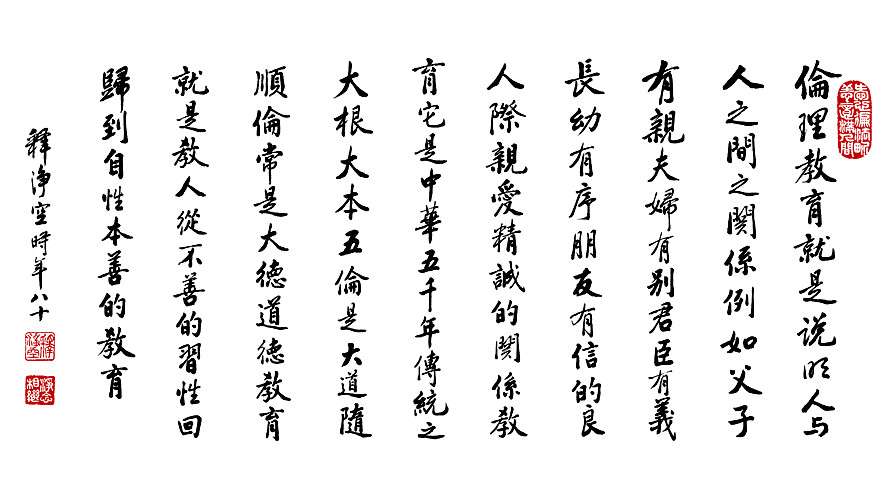 倫理教育就是说明人与
人之間之関係例如父子
有親夫婦有别君臣有義
長幼有序朋友有信的良
人際親愛精誠的関係教
育它是中華五千年傳統之
大根大本五倫是大道隨
順倫常是大德道德教育
就是教人從不善的習性回
歸到自性本善的教育
釋淨空時年八十